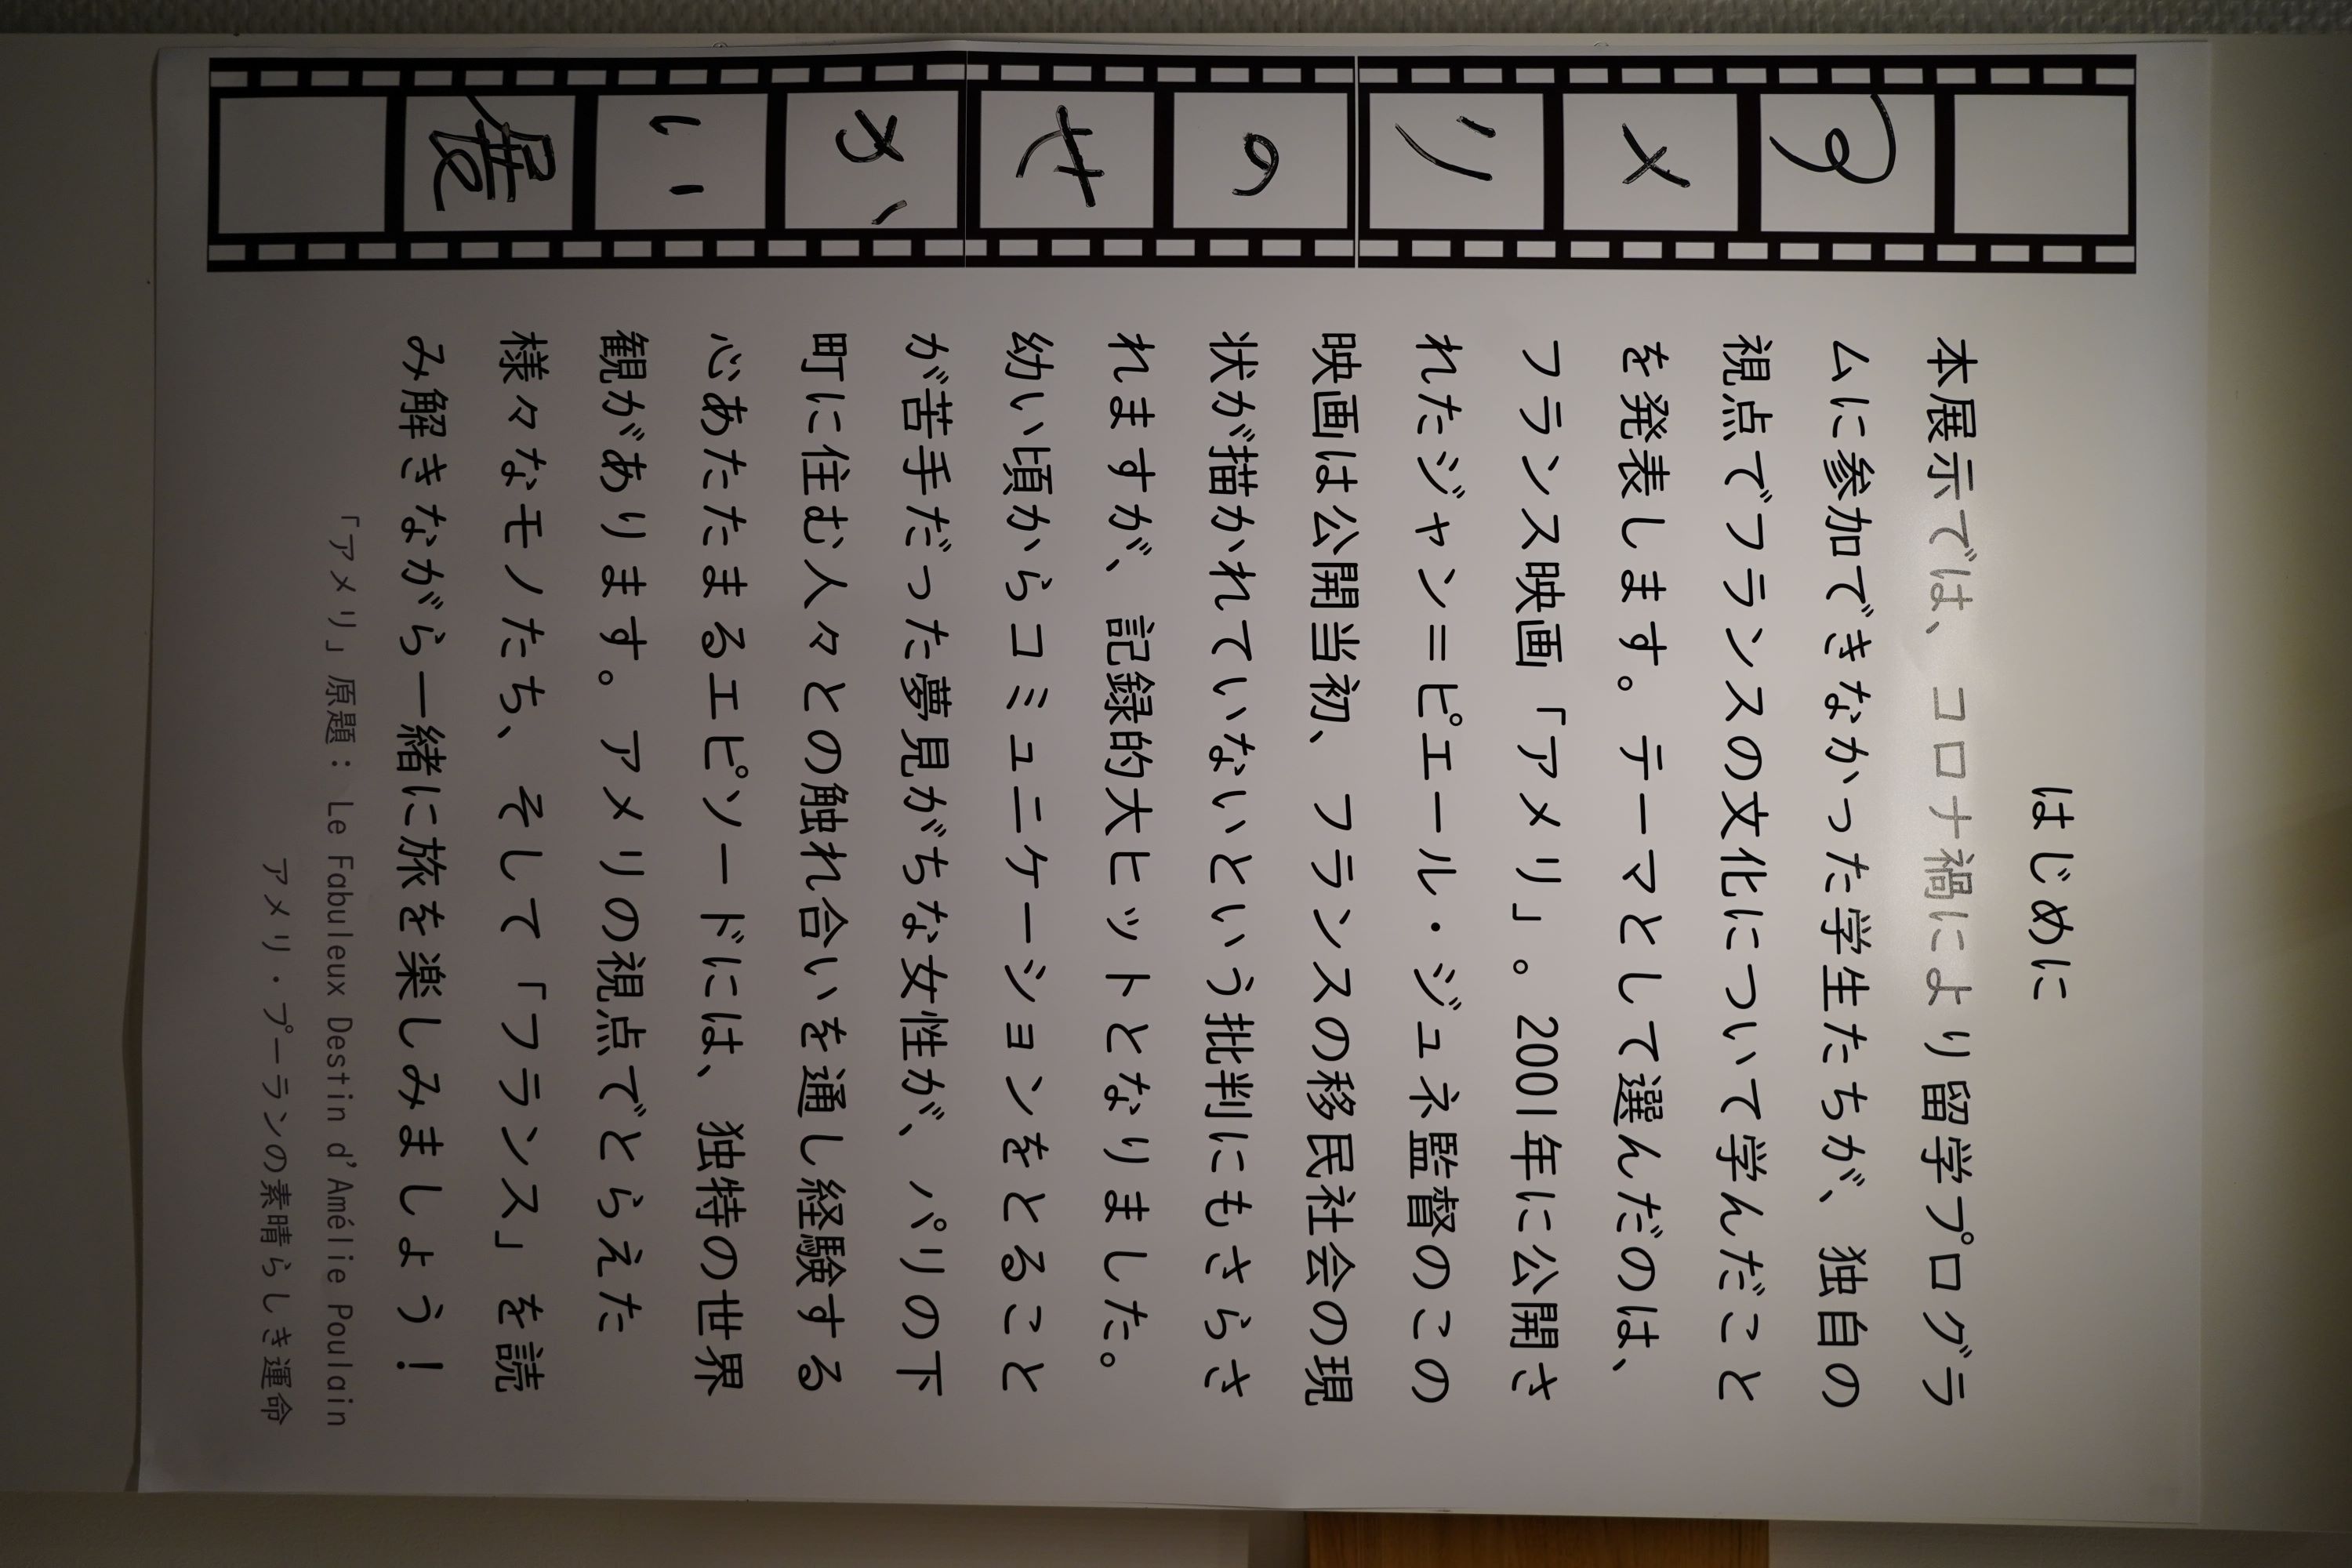 アメリのせかい展
はじめに
本展示では、コロナ禍により留学プログラ
ムに参加できなかった学生たちが、独自の
視点でフランスの文化について学んだこと
を発表します。テーマとして選んだのは、
フランス映画「アメリ」。2001年に公開さ
れたジャン＝ピエール・ジュネ監督のこの
映画は公開当初、フランスの移民社会の現
状が描かれていないという批判にもさらさ
れますが、記録的大ヒットとなりました。
幼い頃からコミュニケーションをとること
が苦手だった夢見がちな女性が、パリの下
町に住む人々との触れ合いを通し経験する
心あたたまるエピソードには、独特の世界
観があります。アメリの視点でとらえた
様々なモノたち、そして「フランス」を読
み解きながら一緒に旅を楽しみましょう！
「アメリ」原題：Le Fabuleux Destin d'Amélie Poulain
アメリ・プーランの素晴らしき運命